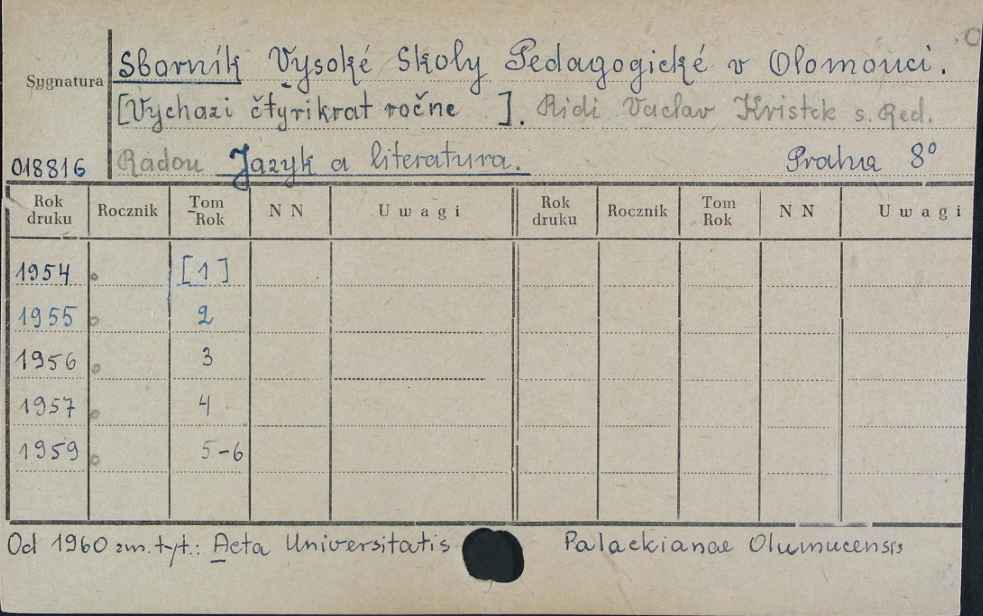 Sygnatura
Sborník Vysoké Školy Pedagogické v Olomouci.
[Vychazi čtyrikrat ročne ]. Ridi Vaclav Kristek s. Red.
018816 Radou Jazyk a literatura. Praha 8°
Rok druku Rocznik Tom Rok N N Uwagi Rok druku Rocznik Tom Rok N N Uwagi
1954 [1]
1955 2
1956 3
1957 4
1959 5-6
Od 1960 zm. tyt.: Acta Universitatis Palackianae Olumucensis